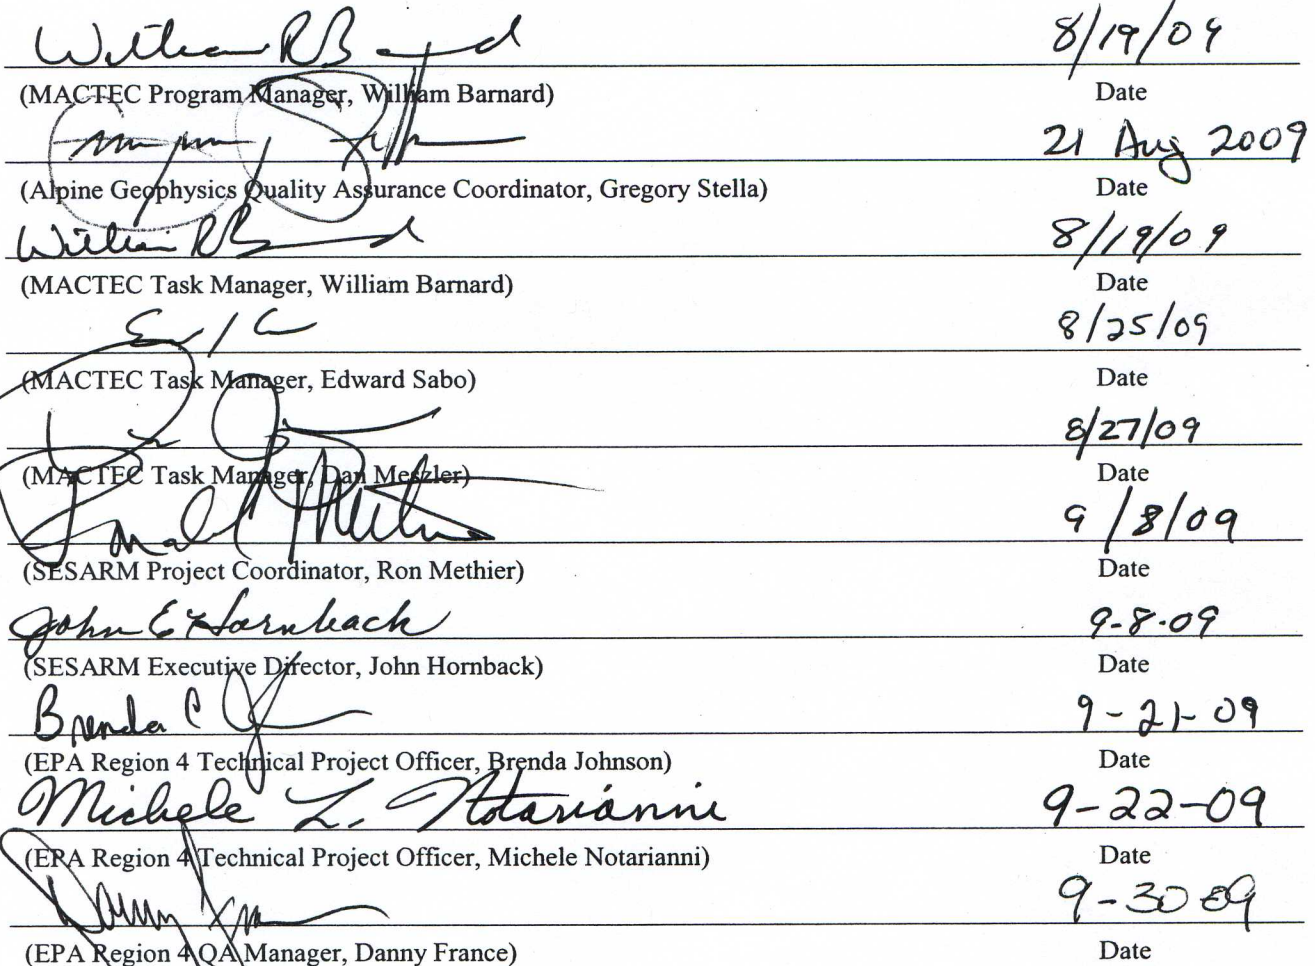 William R B 8/19/09
(MACTEC Program Manager, William Barnard) Date
21 Aug 2009
(Alpine Geophysics Quality Assurance Coordinator, Gregory Stella) Date
William R B 8/19/09
(MACTEC Task Manager, William Barnard) Date
8/25/09
(MACTEC Task Manager, Edward Sabo) Date
8/27/09
(MACTEC Task Manager, Dan Meszler) Date
Ronald Methier 9/8/09
(SESARM Project Coordinator, Ron Methier) Date
John E Hornback 9-8-09
(SESARM Executive Director, John Hornback) Date
Brenda C J 9-21-09
(EPA Region 4 Technical Project Officer, Brenda Johnson) Date
Michele L. Notarianni 9-22-09
(EPA Region 4 Technical Project Officer, Michele Notarianni) Date
Danny France 9-30-09
(EPA Region 4 QA Manager, Danny France) Date